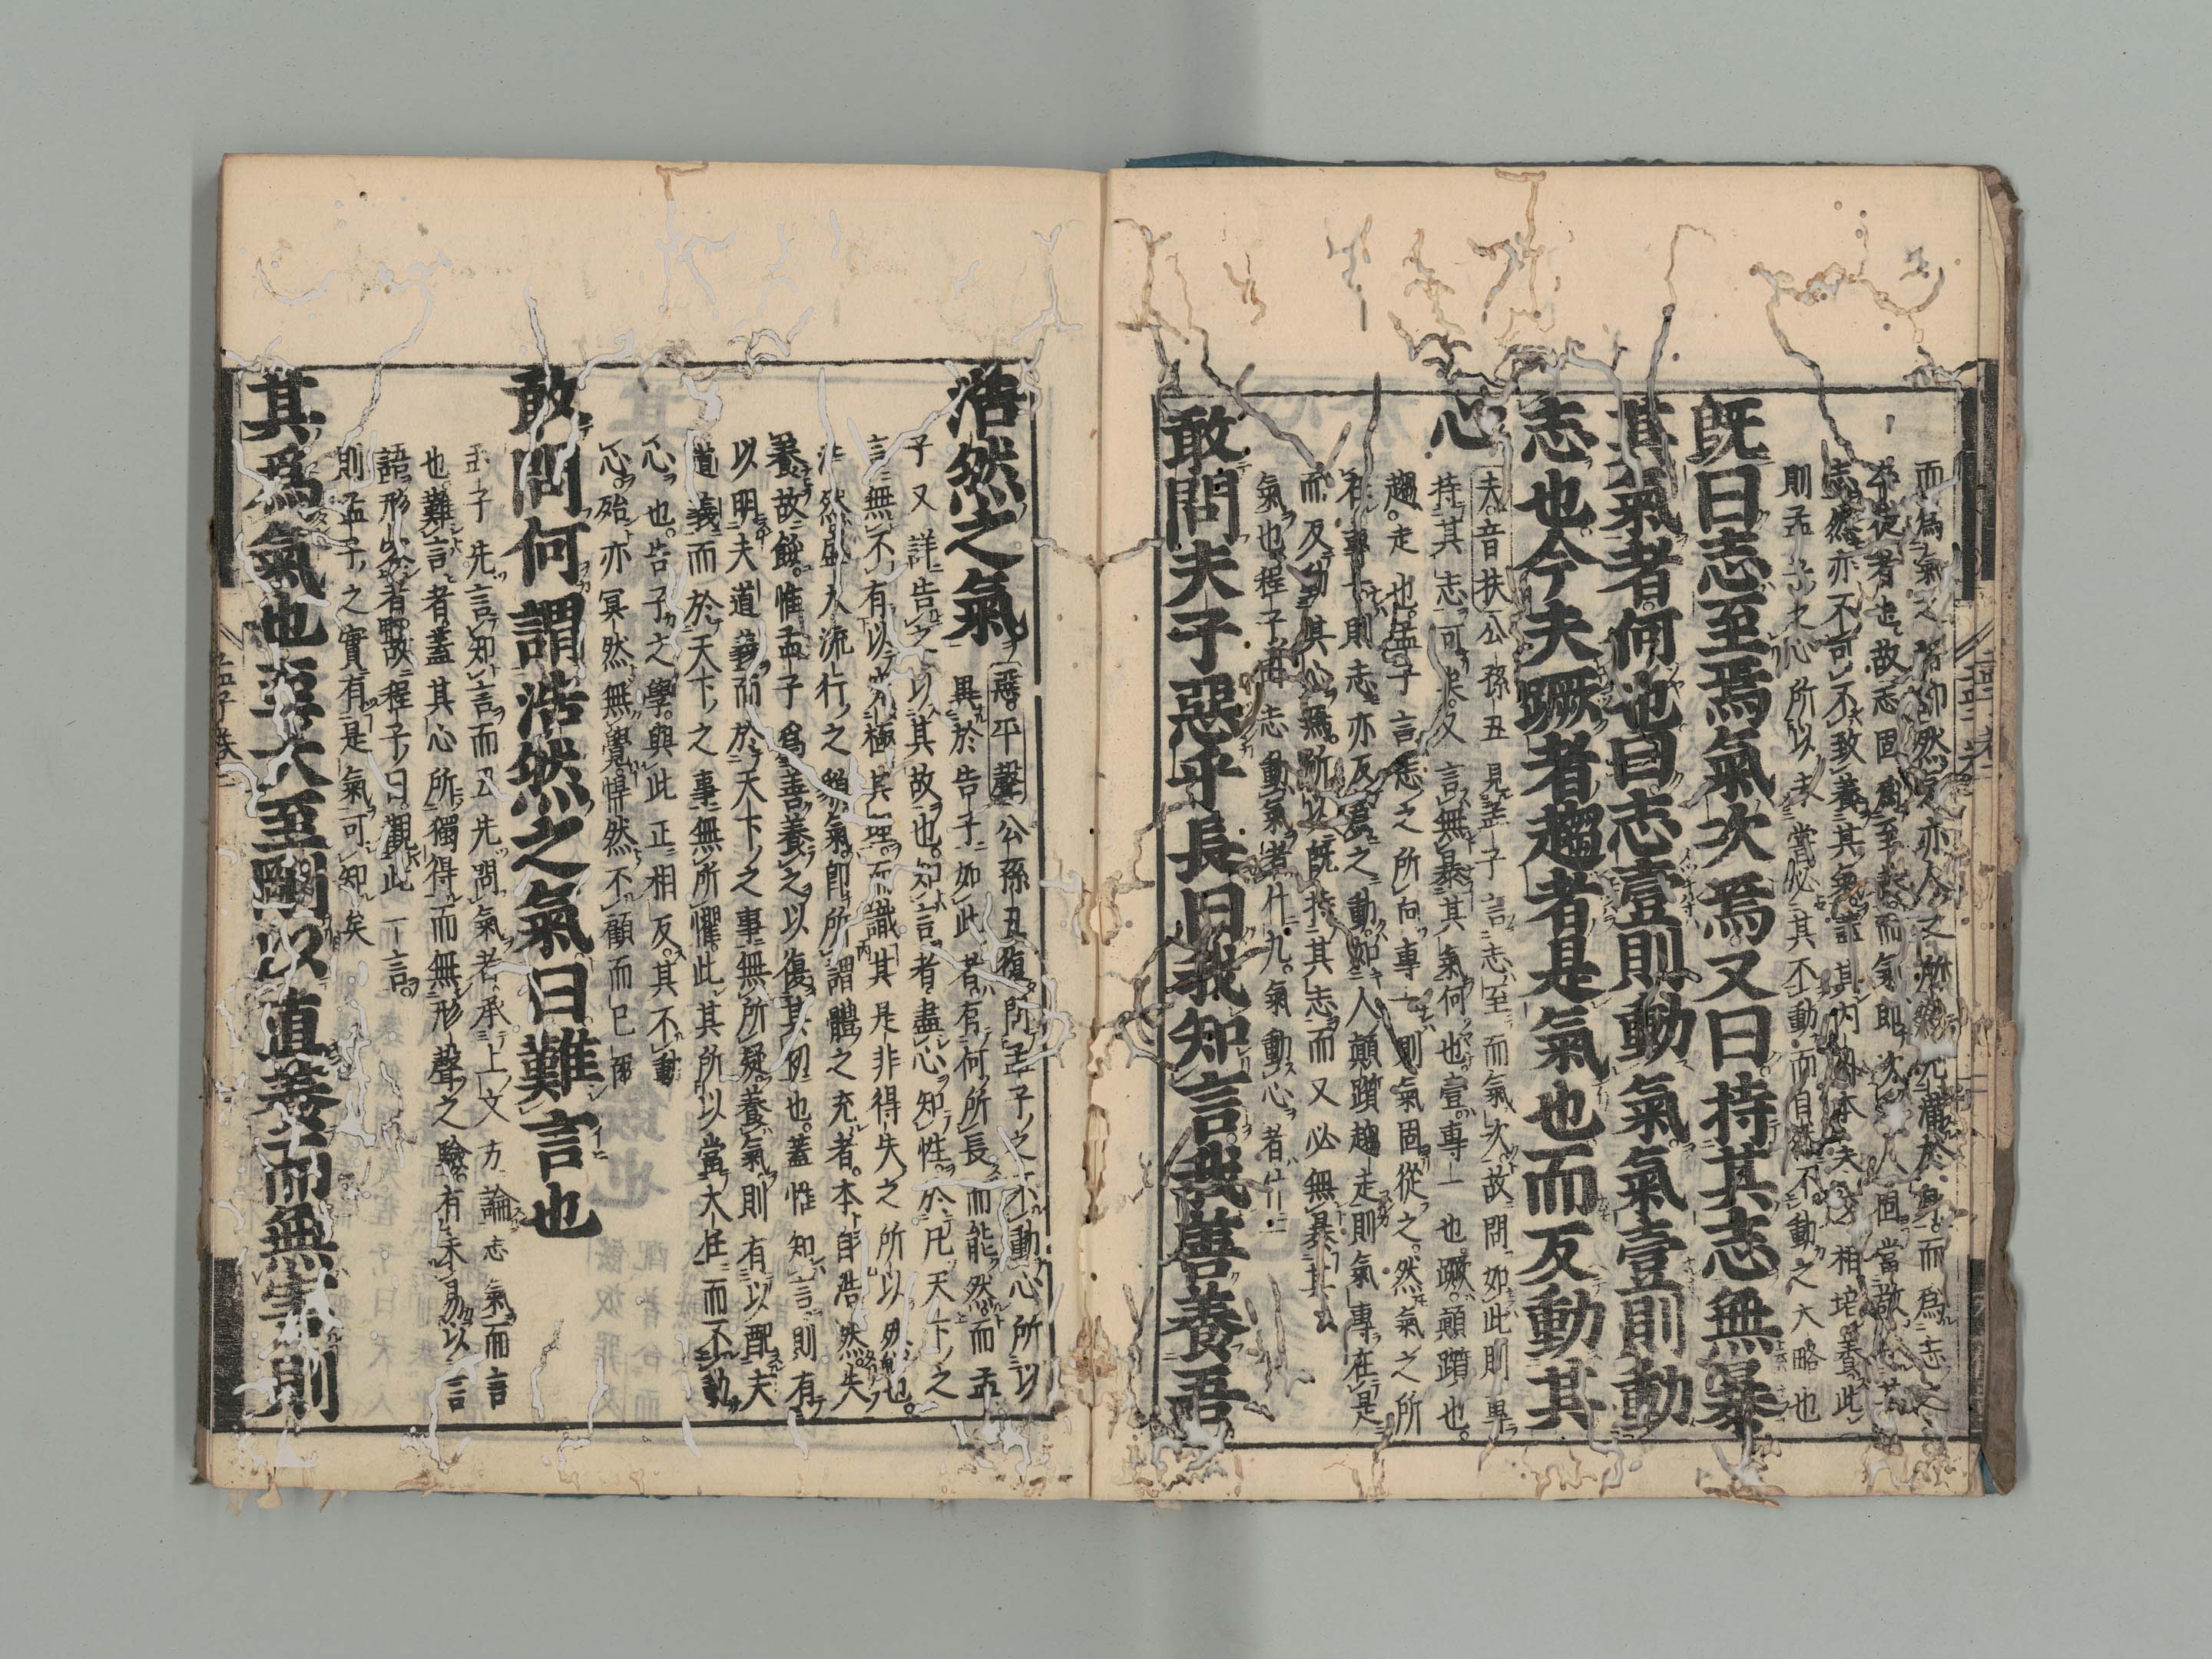 而爲氣之將帥然氣亦人之所以充滿於身而爲志之
卒徒者也故志固爲至極而氣即次之人固當敬守其
志然亦不可不致養其氣蓋其內外本末交相培養此
則孟子之心所以未嘗必其不動而自然不動之大略也
既曰志至焉氣次焉又曰持其志無暴
其氣者何也曰志壹則動氣氣壹則動
志也今夫蹶者趨者是氣也而反動其
心
夫音扶公孫丑見孟子言志至而氣次故問如此則專
持其志可矣又言無暴其氣何也壹專一也蹶顚躓也
趨走也孟子言志之所向專一則氣固從之然氣之所
在專一則志亦反爲之動如人顚躓趨走則氣專在是
而反動其心焉所以既持其志而又必無暴其
氣也程子曰志動氣者什九氣動心者什一
敢問夫子惡乎長曰我知言我善養吾
浩然之氣
惡平聲公孫丑復問孟子之不動心所以
異於告子如此者有何所長而能然而孟
子又詳告之以其故也知言者盡心知性於凡天下之
言無不有以究極其理而識其是非得失之所以然也
浩然盛大流行之貌氣即所謂體之充者本自浩然失
養故餒惟孟子爲善養之以復其初也蓋惟知言則有
以明夫道義而於天下之事無所疑養氣則有以配夫
道義而於天下之事無所懼此其所以當大任而不動
心也告子之學與此正相反其不動
心殆亦冥然無覺悍然不顧而已爾
敢問何謂浩然之氣曰難言也
孟子先言知言而丑先問氣者承上文方論志氣而言
也難言者蓋其心所獨得而無形聲之驗有未易以言
語形容者故程子曰觀此一言
則孟子之實有是氣可知矣
其爲氣也至大至剛以直養而無害則
孟子卷二